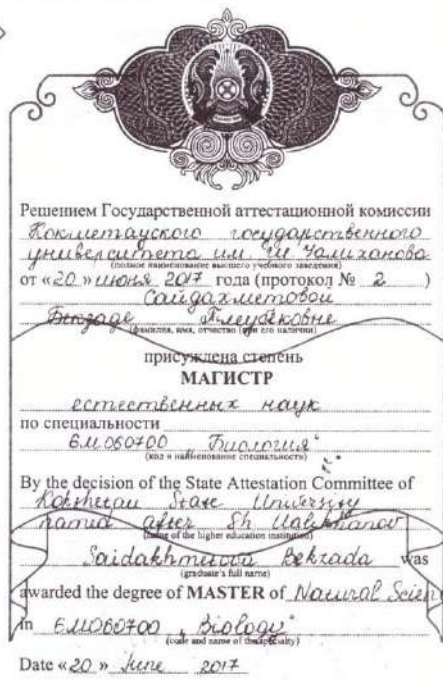 Решением Государственной аттестационной комиссии
Кокшетауского государственного
университета им. Ш. Уалиханова
(полное наименование высшего учебного заведения)
от «20» июня 2017 года (протокол № 2 )
Сайдахметовой
Бекзаде Тлеубековне
(фамилия, имя, отчество (при его наличии)
присуждена степень
МАГИСТР
естественных наук
по специальности
6М060700 „Биология“
(код и наименование специальности)
By the decision of the State Attestation Committee of
Kokshetau State University
named after Sh Ualikhanov
(name of the higher education institution)
Saidakhmetova Bekzada was
(graduate's full name)
awarded the degree of MASTER of Natural Scien
in 6M060700 „Biology“
(code and name of the specialty)
Date «20» June 2017